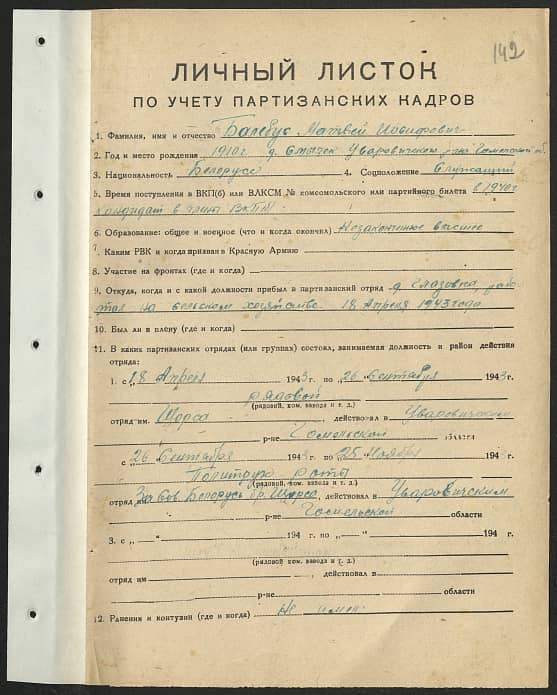 142
ЛИЧНЫЙ ЛИСТОК
ПО УЧЕТУ ПАРТИЗАНСКИХ КАДРОВ
1. Фамилия, имя и отчество Балебус Матвей Иосифович
2. Год и место рождения 1910г. д. Смычек Уваровичского р-на Гомельской об.
3. Национальность Белорусс 4. Соцположение Служащий
5. Время поступления в ВКП(б) или ВЛКСМ № комсомольского или партийного билета с 1940г
Кандидат в члены ВКПб
6. Образование: общее и военное (что и когда окончил) Незаконченное высшее
7. Каким РВК и когда призван в Красную Армию
8. Участие на фронтах (где и когда)
9. Откуда, когда и с какой должности прибыл в партизанский отряд д Глазовка рабо
тал на сельском хозяйстве. 18 Апреля 1943 года
10. Был ли в плену (где и когда)
11. В каких партизанских отрядах (или группах) состоял, занимаемая должность и район действия
отряда:
1. с „18 Апреля 1943 г. по „26 Сентября 1943 г.
рядовой
(рядовой, ком. взвода и т. д.)
отряд им. Щорса, действовал в Уваровичском
р-не Гомельской области
с „26 Сентября 1943 г. по „25 Ноября 194 г.
Политрук роты
(рядовой, ком. взвода и т. д.)
отряд За Сов Белорусь бр. Щорса, действовал в Уваровичским
р-не Гомельской области
3. с „—“ 194 г. по „—“ 194 г.
(рядовой, ком. взвода и т. д.)
отряд им , действовал в
р-не области
12. Ранения и контузии (где и когда) Не имел